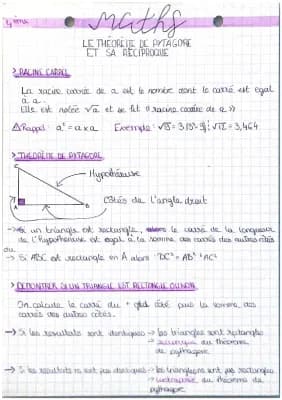 4ème
Maths
LE THÉORÈTE DE PYTAGORE
ET SA RÉCIPROQUE
> RACINE CARRÉE
La racine carrée de a est le nombre dont le carré est egal
à a.
Elle est notée √a et se lit « racine carrée de a »
⚠Rappel : a² = a x a Exemple : √9 = 3 (3² = 9) ; √12 = 3,464
> THÉORÈTE DE PYTAGORE
C
Hypothénuse
A
B
Côtés de l'angle droit
→ Si un triangle est rectangle, alors le carré de la longueur
de l'hypothénuse est egal à la somme des carrés des autres côtés
ou
→ Si ABC est rectangle en A alors BC² = AB² + AC²
> DÉMONTRER SI UN TRIANGLE EST RECTANGLE OU NON
On calcule le carré du + grd côté puis la somme des
carrés des autres côtés.
→ Si les resultats sont identiques → les triangles sont rectangles
→ réciproque du théorème
de pythagore
→ Si les resultats ne sont pas identiques → les triangles ne sont pas rectangles
→ contraposée du théorème de
pythagore